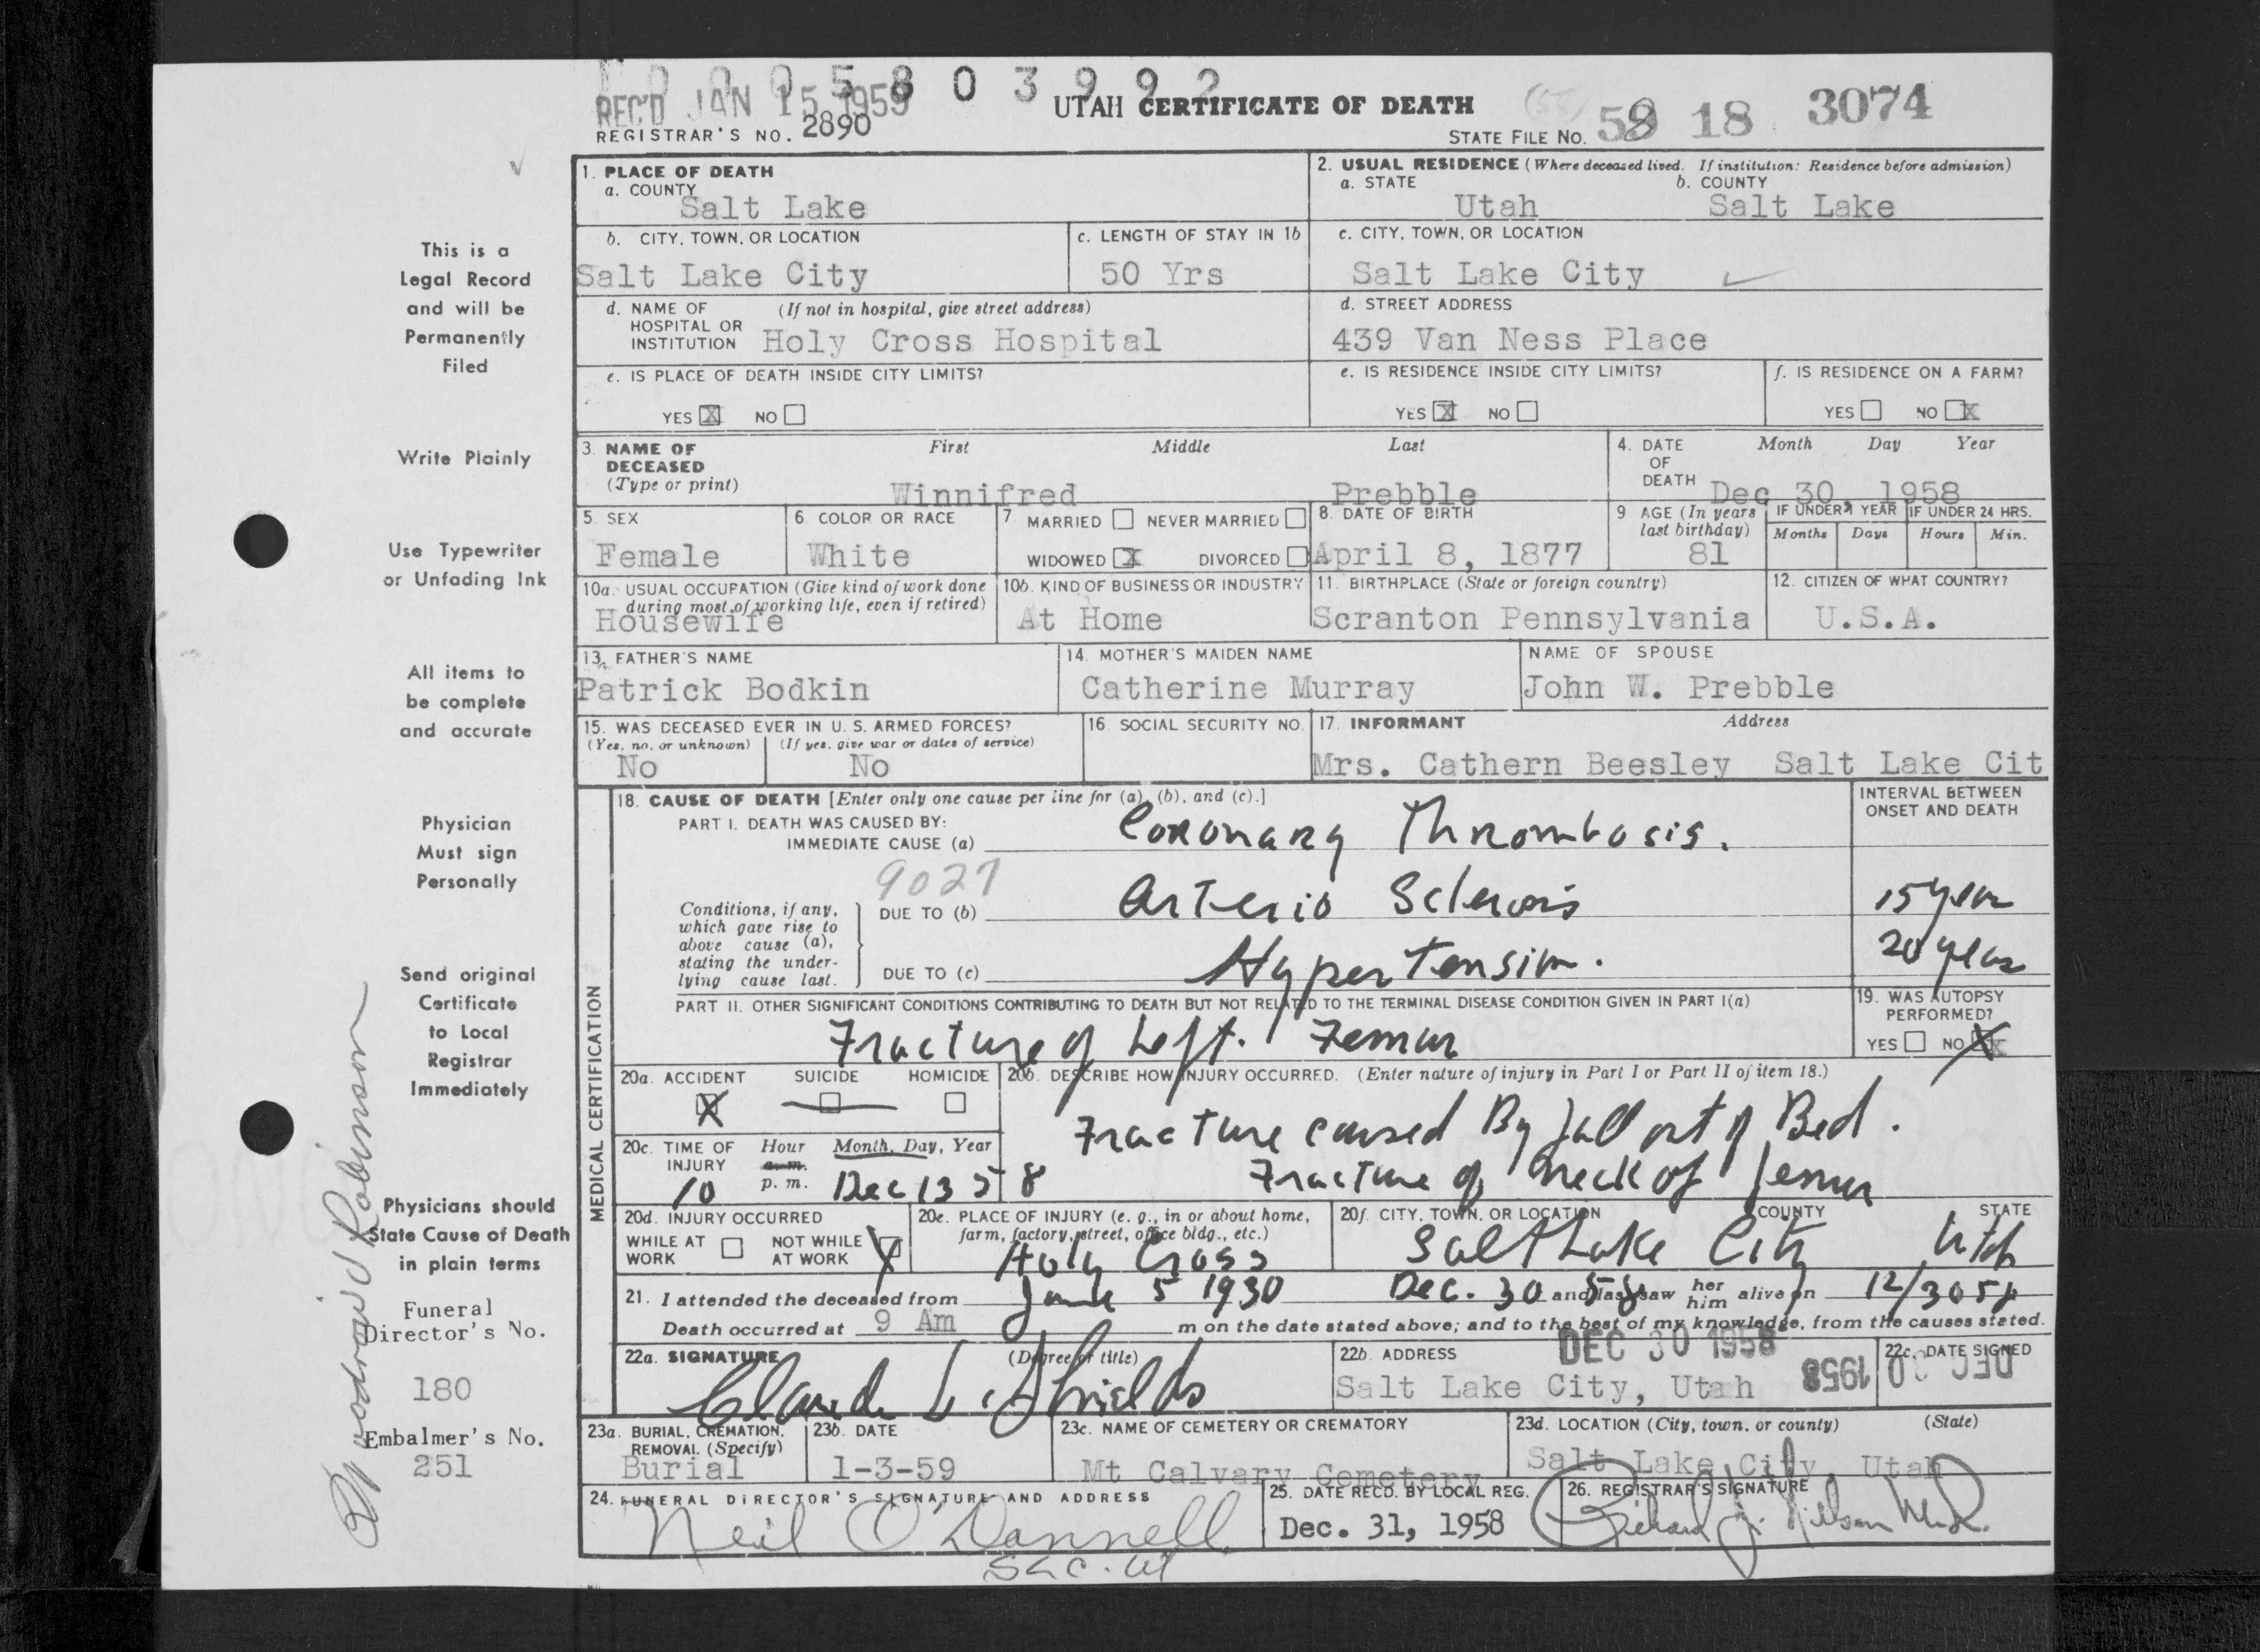 0 0 0 5 8 0 3 9 9 2
REC'D JAN 15 1959
UTAH CERTIFICATE OF DEATH
REGISTRAR'S NO. 2890
STATE FILE NO. 58 18 3074
1. PLACE OF DEATH
a. COUNTY
Salt Lake
2. USUAL RESIDENCE (Where deceased lived. If institution: Residence before admission)
a. STATE b. COUNTY
Utah Salt Lake
b. CITY, TOWN, OR LOCATION
Salt Lake City
c. LENGTH OF STAY IN 1b
50 Yrs
c. CITY, TOWN, OR LOCATION
Salt Lake City
d. NAME OF HOSPITAL OR INSTITUTION (If not in hospital, give street address)
Holy Cross Hospital
d. STREET ADDRESS
439 Van Ness Place
e. IS PLACE OF DEATH INSIDE CITY LIMITS?
YES X NO
e. IS RESIDENCE INSIDE CITY LIMITS?
YES X NO
f. IS RESIDENCE ON A FARM?
YES NO X
3. NAME OF DECEASED (Type or print)
First Middle Last
Winnifred Prebble
4. DATE OF DEATH Month Day Year
Dec 30, 1958
5. SEX
Female
6. COLOR OR RACE
White
7. MARRIED NEVER MARRIED
WIDOWED X DIVORCED
8. DATE OF BIRTH
April 8, 1877
9 AGE (In years last birthday)
81
IF UNDER 1 YEAR IF UNDER 24 HRS.
Months Days Hours Min.
10a. USUAL OCCUPATION (Give kind of work done during most of working life, even if retired)
Housewife
10b. KIND OF BUSINESS OR INDUSTRY
At Home
11. BIRTHPLACE (State or foreign country)
Scranton Pennsylvania
12. CITIZEN OF WHAT COUNTRY?
U.S.A.
13. FATHER'S NAME
Patrick Bodkin
14. MOTHER'S MAIDEN NAME
Catherine Murray
NAME OF SPOUSE
John W. Prebble
15. WAS DECEASED EVER IN U. S. ARMED FORCES?
(Yes, no, or unknown) (If yes, give war or dates of service)
No No
16. SOCIAL SECURITY NO.
17. INFORMANT Address
Mrs. Cathern Beesley Salt Lake Cit
MEDICAL CERTIFICATION
18. CAUSE OF DEATH [Enter only one cause per line for (a), (b), and (c).]
INTERVAL BETWEEN ONSET AND DEATH
PART I. DEATH WAS CAUSED BY:
IMMEDIATE CAUSE (a) Coronary Thrombosis.
9027
Conditions, if any, which gave rise to above cause (a), stating the underlying cause last.
DUE TO (b) Arterio Sclerosis 15 year
DUE TO (c) Hypertension. 20 years
PART II. OTHER SIGNIFICANT CONDITIONS CONTRIBUTING TO DEATH BUT NOT RELATED TO THE TERMINAL DISEASE CONDITION GIVEN IN PART I(a)
Fracture of Left. Femur
19. WAS AUTOPSY PERFORMED?
YES NO X
20a. ACCIDENT SUICIDE HOMICIDE
X
20b. DESCRIBE HOW INJURY OCCURRED. (Enter nature of injury in Part I or Part II of item 18.)
Fracture caused By fall out of Bed.
Fracture of neck of femur
20c. TIME OF INJURY Hour Month, Day, Year
a.m.
10 p.m. Dec 13 58
20d. INJURY OCCURRED
WHILE AT WORK NOT WHILE AT WORK X
20e. PLACE OF INJURY (e. g., in or about home, farm, factory, street, office bldg., etc.)
Holy Cross
20f. CITY, TOWN, OR LOCATION COUNTY STATE
Salt Lake City Utah
21. I attended the deceased from June 5 1930 Dec. 30 58 and last saw her him alive on 12/30 58
Death occurred at 9 Am m on the date stated above; and to the best of my knowledge, from the causes stated.
22a. SIGNATURE (Degree or title)
Claude L. Shields
22b. ADDRESS
DEC 30 1958
Salt Lake City, Utah
22c. DATE SIGNED
DEC 30 1958
23a. BURIAL, CREMATION, REMOVAL (Specify)
Burial
23b. DATE
1-3-59
23c. NAME OF CEMETERY OR CREMATORY
Mt Calvary Cemetery
23d. LOCATION (City, town, or county) (State)
Salt Lake City, Utah
24. FUNERAL DIRECTOR'S SIGNATURE AND ADDRESS
Neil O'Donnell
SLC. Ut
25. DATE RECD. BY LOCAL REG.
Dec. 31, 1958
26. REGISTRAR'S SIGNATURE
Richard J. Nilson M.D.
This is a
Legal Record
and will be
Permanently
Filed
Write Plainly
Use Typewriter
or Unfading Ink
All items to
be complete
and accurate
Physician
Must sign
Personally
Send original
Certificate
to Local
Registrar
Immediately
Physicians should
State Cause of Death
in plain terms
Funeral
Director's No.
180
Embalmer's No.
251
Robinson